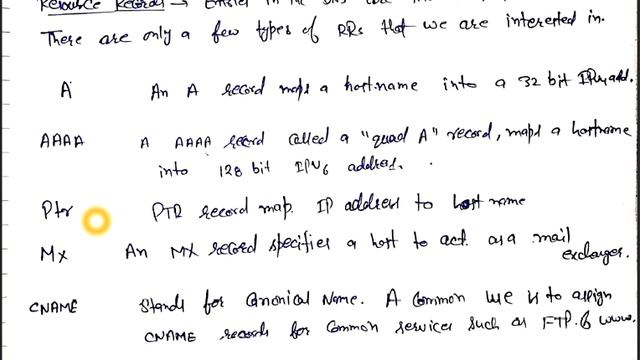 Resource Records → Entries in the DNS
There are only a few types of RRs that we are interested in.
A An A record maps a hostname into a 32 bit IPv4 add.
AAAA A AAAA record called a "quad A" record, maps a hostname
into 128 bit IPV6 address.
Ptr PTR record map IP address to host name
Mx An MX record specifies a host to act as a mail
exchanger.
CNAME Stands for Canonical Name. A common use is to assign
CNAME records for common services such as FTP & www.